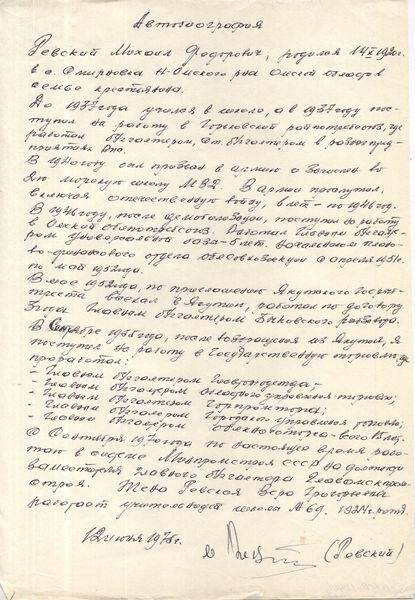 Автобиография
Ревский Михаил Федорович, родился 14/X 1920г.
в с. Смирновка Н-Омского р-на Омской области в
семье крестьянина.
До 1937 года учился в школе, а в 1937 году пос-
тупил на работу в Горьковский райпотребсоюз, где
работал бухгалтером, ст. бухгалтером в разных пред-
приятиях
В 1940 году был призван в армию и зачислен во
морскую школу В армии прослужил,
включая отечественную войну, 6 лет - по 1946 год.
В 1946 году, после демобилизации, поступил на работу
в Омский Работал Главным бухгалте-
ром база - 6 лет, начальником плано-
во-финансового отдела с апреля 1951г.
по май 1952 года.
В мае 1952 года, по приглашению Якутского
треста выехал в Якутию, работал по договору
3 года Главным бухгалтером Быковского рыбзавода.
В Сентябре 1955 года, после возвращения из Якутии, я
поступил на работу в Государственную торговлю, где
проработал:
- Главным бухгалтером
- Главным бухгалтером областного управления торговли;
- Главным бухгалтером Горпромторга;
- Главным бухгалтером Городского управления торговли;
- Главным бухгалтером
С Сентября 1970 года по настоящее время рабо-
таю в системе Минпромстроя СССР на должности
заместителя главного бухгалтера Главомскпром-
строя. Жена Ревская Вера Григорьевна
работает учительницей школа № 69, 1924 г. рожд.
12 июня 1976г. (Ревский)